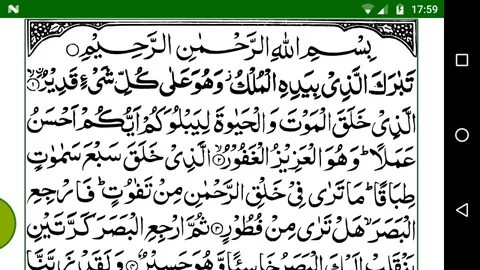 17:59
بِسْمِ اللهِ الرَّحْمٰنِ الرَّحِيْمِ
تَبٰرَكَ الَّذِىْ بِيَدِهِ الْمُلْكُ وَهُوَ عَلٰى كُلِّ شَىْءٍ قَدِيْرُۨ ۝۱
الَّذِىْ خَلَقَ الْمَوْتَ وَالْحَيٰوةَ لِيَبْلُوَكُمْ اَيُّكُمْ اَحْسَنُ
عَمَلًا ؕ وَهُوَ الْعَزِيْزُ الْغَفُوْرُ ۝۲ الَّذِىْ خَلَقَ سَبْعَ سَمٰوٰتٍ
طِبَاقًا ؕ مَا تَرٰى فِىْ خَلْقِ الرَّحْمٰنِ مِنْ تَفٰوُتٍ ؕ فَارْجِعِ
الْبَصَرَ ۙ هَلْ تَرٰى مِنْ فُطُوْرٍ ۝۳ ثُمَّ ارْجِعِ الْبَصَرَ كَرَّتَيْنِ
يَنْقَلِبْ اِلَيْكَ الْبَصَرُ خَاسِئًا وَّهُوَ حَسِيْرٌ ۝۴ وَلَقَدْ زَيَّنَّا